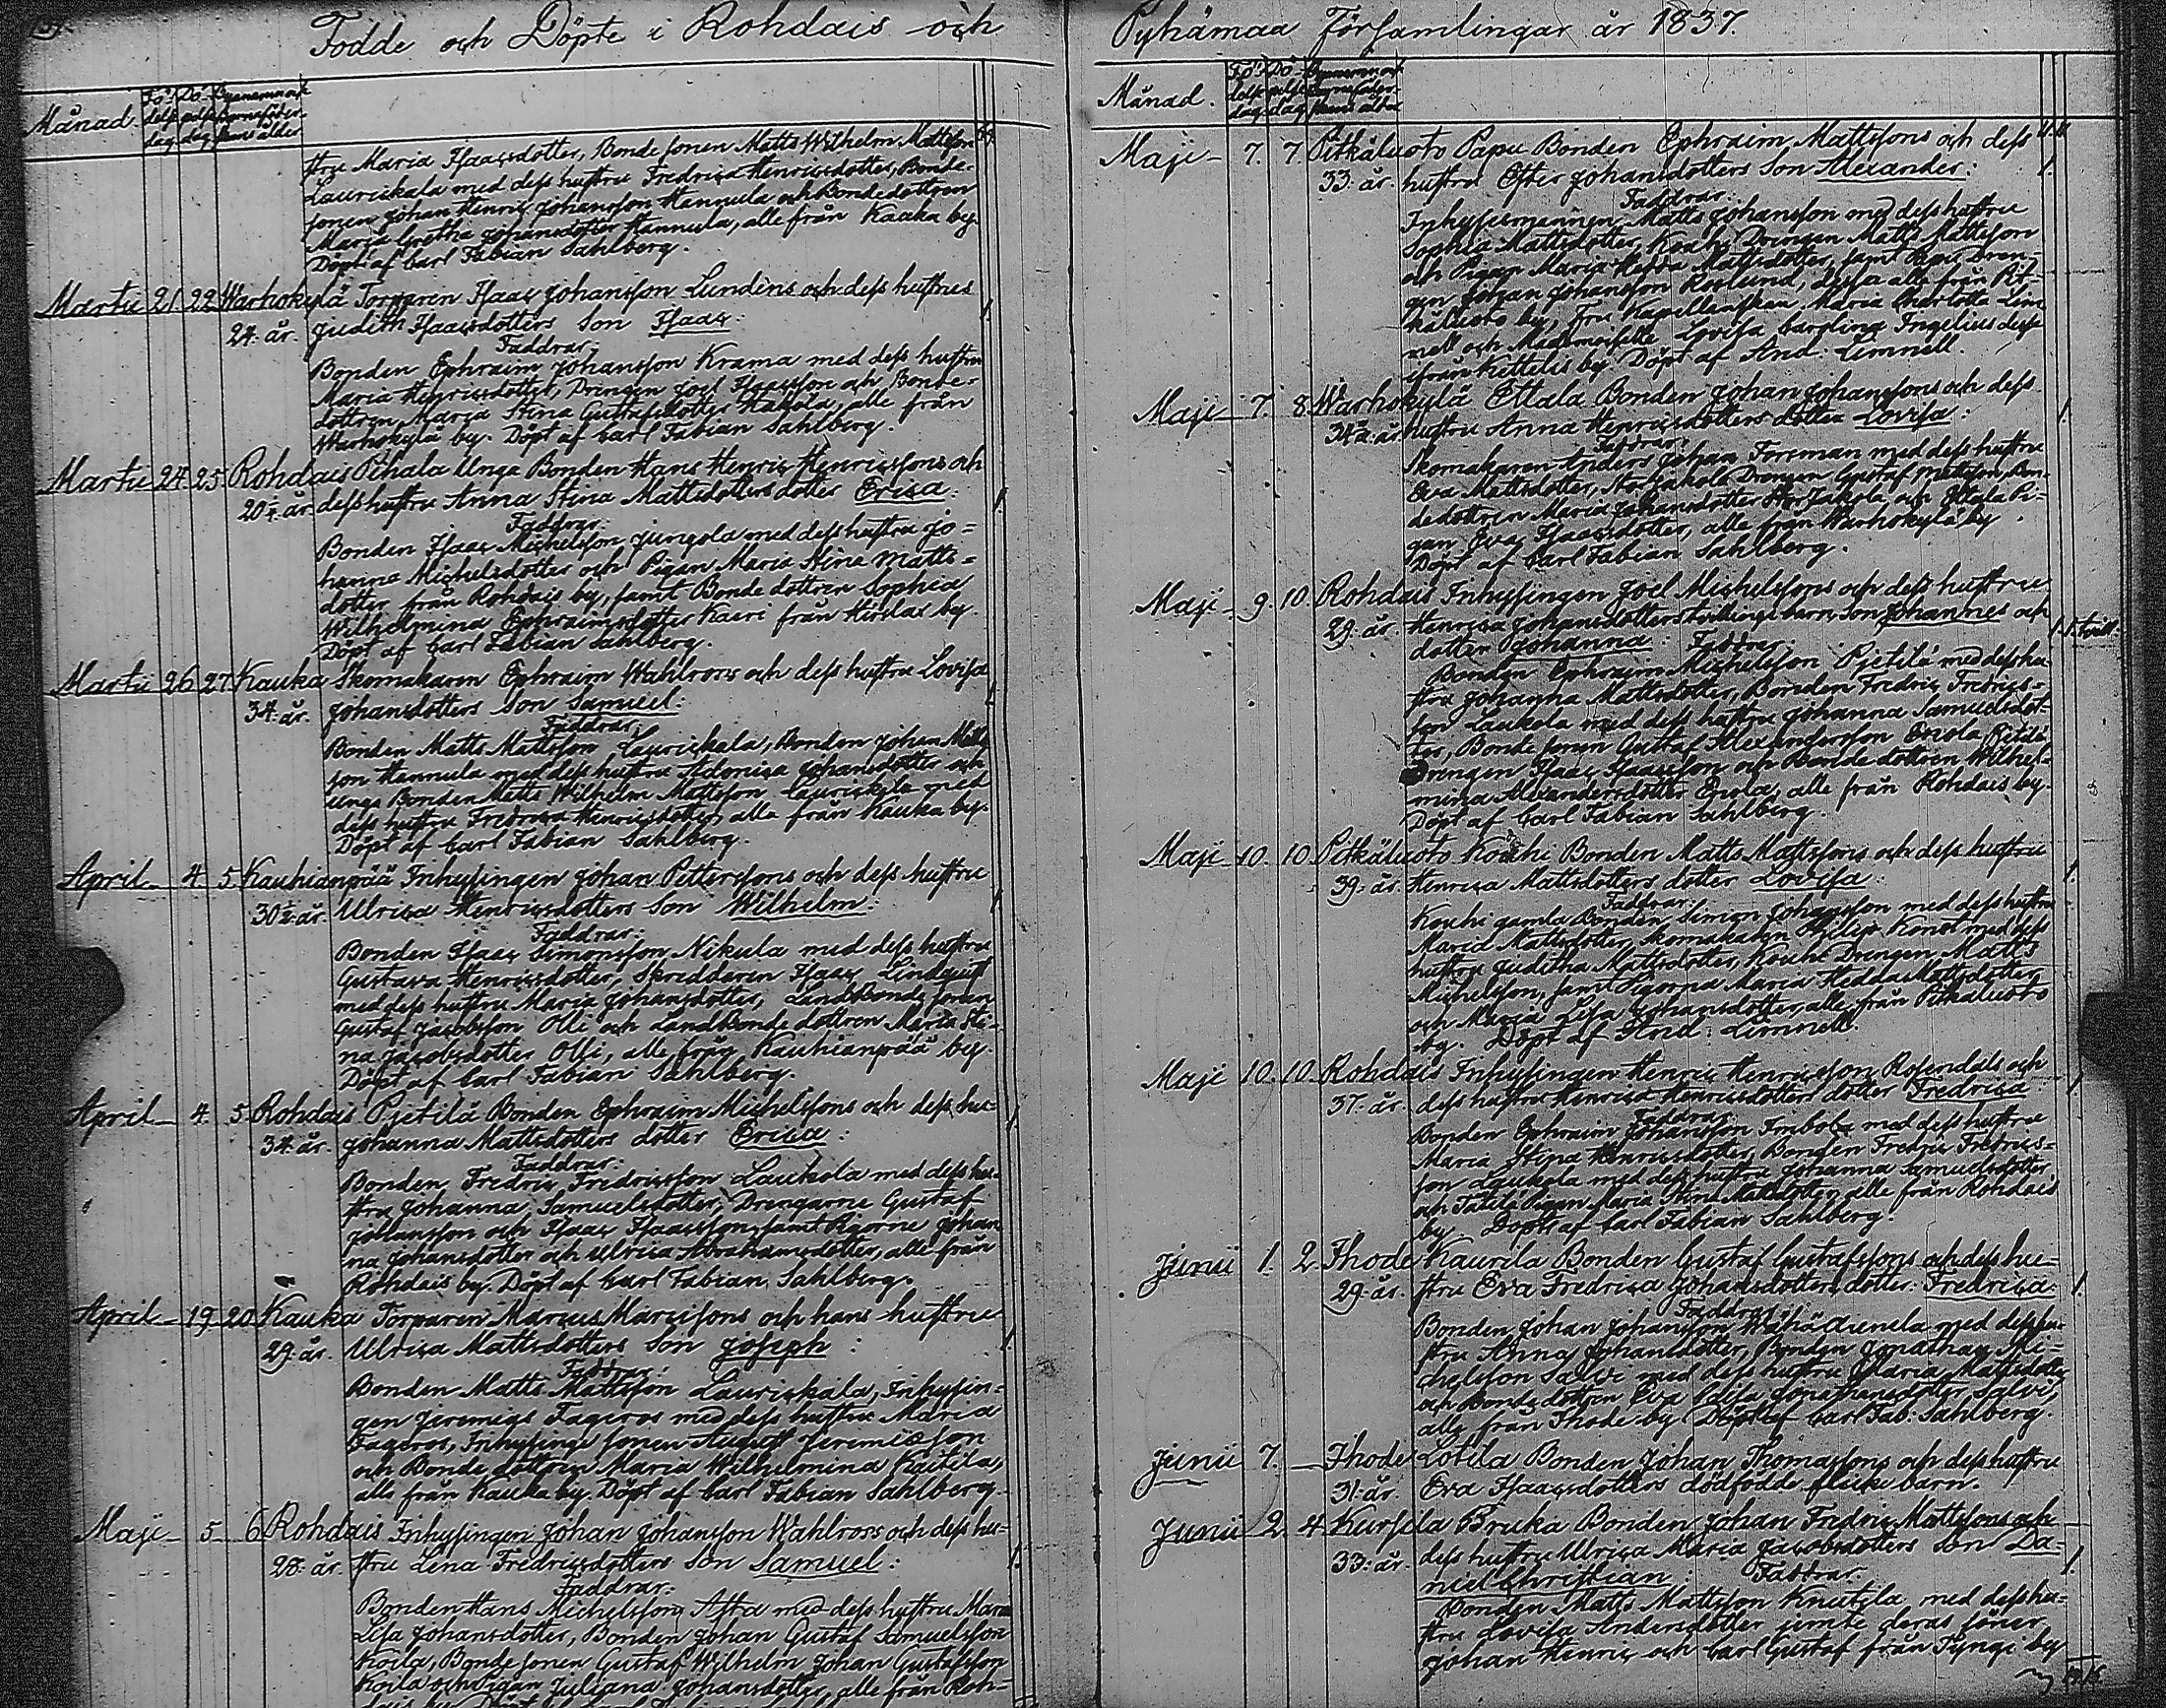 Födde och Döpte i Rohdais och
Månad. Fö- delse dag Dö- pelse dag Byanamn och Barnaföder- skans ålder
stru Maria Isaacsdotter, Bonde sonen Matts Wilhelm Mattsson
Lauriskala med dess hustru Fredrica Henricsdotter, Bonde-
sonen Johan Henric Johansson Hannula och Bondedottren
Maria Gretha Johansdotter Hannula, alle från Kauka by.
Döpt af Carl Fabian Sahlberg.
Martii 21 22 Warhokylä Torparen Isaac Johansson Lundéns och dess hustrus
24. år. Judith Isaacsdotters Son Isaac: 1.
Faddrar:
Bonden Ephraim Johansson Krama med dess hustru
Maria Henricsdotter, Drengen Joel Isaacsson och Bonde-
dottren Maria Stina Gustafsdotter Kakola, alle från
Warhokylä by. Döpt af Carl Fabian Sahlberg.
Martii 24 25 Rohdais Pihala Unga Bonden Hans Henric Henricssons och
20½ år dess hustru Anna Stina Mattsdotters dotter Erica: 1.
Faddrar:
Bonden Isaac Michelsson Jungola med dess hustru Jo-
hanna Michelsdotter och Pigan Maria Stina Matts-
dotter från Rohdais by, samt Bonde dottren Sophia
Wilhelmina Ephraimsdotter Kaeri från Hirslax by.
Döpt af Carl Fabian Sahlberg.
Martii 26 27 Kauka Skomakaren Ephraim Wahlroos och dess hustru Lovisa
34. år. Johansdotters Son Samuel: 1.
Faddrar:
Bonden Matts Mattsson Lauriskala, Bonden Johan Matts-
son Hannula med dess hustru Adorica Johansdotter och
unga Bonden Matts Wilhelm Mattsson Lauriskyla med
dess hustru Fredrica Henricsdotter, alla från Kauka by.
Döpt af Carl Fabian Sahlberg.
April 4 5 Kauhianpää Inhysingen Johan Petterssons och dess hustru
30½ år. Ulrica Henricsdotters Son Wilhelm: 1.
Faddrar:
Bonden Isaac Simonsson Nikula med dess hustru
Gustava Henricsdotter, Skreddaren Isaac Lindquist
med dess hustru Maria Johansdotter, LandBonde sonen
Gustaf Jacobsson Olli och LandBonde dottren Maria Sti-
na Jacobsdotter Olli, alle från Kauhianpää by.
Döpt af Carl Fabian Sahlberg.
April 4. 5 Rohdais Pjetilä Bonden Ephraim Michelssons och dess hus-
34. år. Johanna Mattsdotters dotter Erica: 1.
Faddrar:
Bonden Fredric Fredricsson Laukola med dess hu-
stru Johanna Samuelsdotter, Drengarne Gustaf
Johansson och Isaac Isaacsson, samt Pigorne Johan
na Johansdotter och Ulrica Abrahamsdotter, alle från
Rohdais by. Döpt af Carl Fabian Sahlberg.
April 19 20 Kauka Torparen Marcus Marcissons och hans hustru
29. år. Ulrica Mattsdotters Son Joseph: 1.
Faddrar:
Bonden Matts Mattsson Lauriskala, Inhysin-
gen Jeremias Fageros med dess hustru Maria
Fageros, Inhysinge sonen August Jeremiæson
och Bonde dottren Maria Wilhelmina Knitila,
alle från Kauka by. Döpt af Carl Fabian Sahlberg.
Maji 5 6 Rohdais Inhysingen Johan Johansson Wahlroos och dess hu-
28. år. stru Lena Fredricsdotters Son Samuel: 1.
Faddrar:
Bonden Hans Michelsson Asta med dess hustru Maria
Lisa Johansdotter, Bonden Johan Gustaf Samuelsson
Koila, Bonde sonen Gustaf Wilhelm Johan Gustafsson
Koila och Pigan Juliana Johansdotter, alle från Roh-
Pyhämaa Församlingar år 1837.
Månad. Fö- delse dag Dö- pelse dag Byanamn och Barnaföder- skans ålder
Maji 7. 7. Pitkäluoto Papu Bonden Ephraim Mattssons och dess
33. år. hustru Ester Johansdotters Son Alexander: 1.
Faddrar:
Inhysesmannen Matts Johansson med dess hustru
Sophia Mattsdotter, Kouhi Drengen Matts Mattsson
och Pigan Maria Hedda Mattsdotter, samt Papu Dren-
gen Johan Johansson Roslund, dessa alle från Pit-
käluoto by, Fru Kapellanskan Maria Charlotta Lim-
nell och Mademoiselle Lovisa Carolina Ingelius desse
ifrån Kettelis by. Döpt af And: Limnell.
Maji 7. 8 Warhokylä Ettala Bonden Johan Johanssons och dess
34½ år. hustru Anna Henricsdotters dotter Lovisa: 1.
Faddrar:
Skomakaren Anders Johan Forsman med dess hustru
Eva Mattsdotter, StorJakola Drengen Gustaf Mattsson, Bon-
dedottren Maria Johansdotter StorJakola och Ettala Pi-
gan Eva Isaacsdotter, alle från Warhokylä by.
Döpt af Carl Fabian Sahlberg.
Maji 9. 10. Rohdais Inhysingen Joel Michelssons och dess hustru
29. år. Henrica Johansdotters tvillinge barn, Son Johannes och 1. 1. tvill:
dotter Johanna: Faddrar
Bonden Ephraim Michelsson Pjetilä med dess hu-
stru Johanna Mattsdotter, Bonden Fredric Fredrics-
son Laukola med dess hustru Johanna Samuelsdot-
ter, Bonde sonen Gustaf Alexandersson Eriola, Pjetilä
Drengen Isaac Isaacsson och Bonde dottren Wilhel-
mina Alexandersdotter Eriola, alle från Rohdais by.
Döpt af Carl Fabian Sahlberg.
Maji 10. 10 Pitkäluoto Kouhi Bonden Matts Mattssons och dess hustru
39. år. Henrica Mattsdotters dotter Lovisa: 1.
Faddrar:
Kouhi gamla Bonden Simon Johansson med dess hustru
Maria Mattsdotter, Skomakaren Philip Konst med dess
hustru Juditha Mattsdotter, Kouhi Drengen Matts
Michelsson, samt Pigorna Maria Hedda Mattsdotter,
och Maria Lisa Johansdotter, alle från Pitkäluoto
by. Döpt af And: Limnell.
Maji 10. 10. Rohdais Inhysingen Henric Henricsson Rosendals och
37. år. dess hustru Henrica Henricsdotters dotter Fredrica 1.
Faddrar:
Bonden Ephraim JohanssonImbola med dess hustru
Maria Stina Henricsdotter, Bonden Fredric Fredrics-
son Laukola med dess hustru Johanna Samuelsdotter
och Tatila Pigan Maria Stina Mattsdotter, alle från Rohdais
by. Döpt af Carl Fabian Sahlberg.
Junii 1. 2 Ihode Kaurila Bonden Gustaf Gustafssons och dess hu-
29. år. stru Eva Fredrica Johansdotters dotter: Fredrica: 1.
Faddrar:
Bonden Johan Johansson Wähäqvenela med dess hu-
stru Anna Johansdotter, Bonden Jonathan Mi-
chelsson Salvi med dess hustru Maria Mattsdotter
och Bonde dottren Eva Lovisa Jonathansdotter Salvi,
alle från Ihode by. Döpt af Carl Fab: Sahlberg.
Junii 7. — Ihode Lotila Bonden Johan Thomassons och dess hustru
31. år. Eva Isaacsdotters dödfödde flicke barn.
Junii 2. 4 Kursila Bruka Bonden Johan Fredric Mattssons och
33. år. dess hustru Ulrica Maria Jacobsdotters Son Da- 1.
niel Christian: Faddrar.
Bonden Matts Mattsson Knutila med dess hu-
stru Lovisa Andersdotter jemte deras söner
Johan Henric och Carl Gustaf från Tyngi by